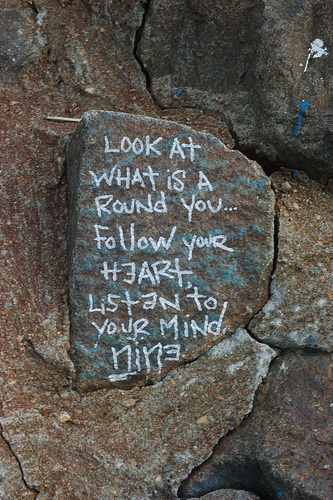 LOOK AT
WHAT IS A
ROUND YOU...
Follow your
HEART,
LISTEN to
YOUR MIND.
nine